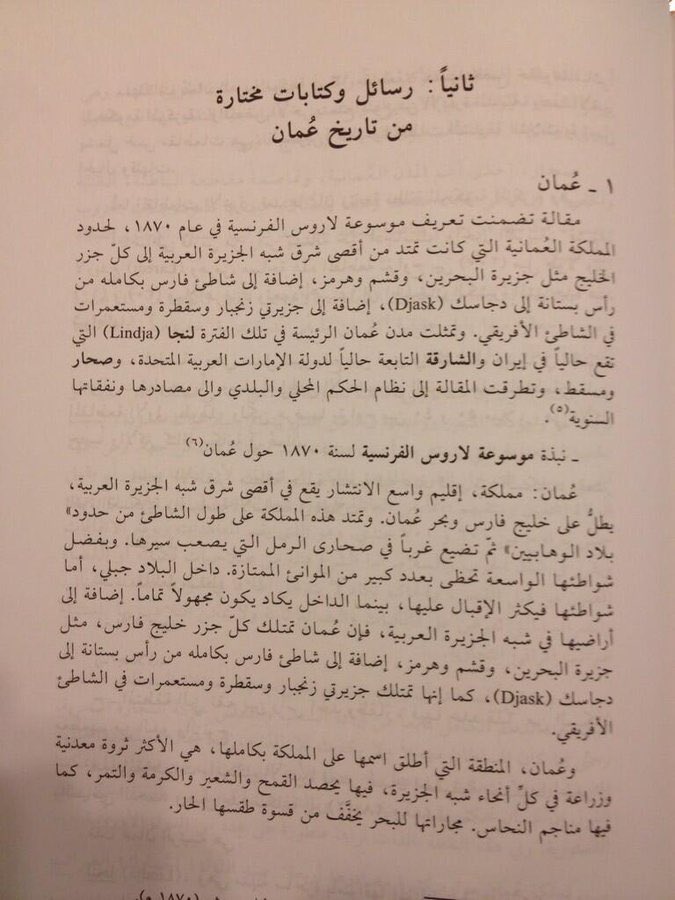 ثانياً: رسائل وكتابات مختارة
من تاريخ عُمان
١ ـ عُمان
مقالة تضمنت تعريف موسوعة لاروس الفرنسية في عام ١٨٧٠، لحدود
المملكة العُمانية التي كانت تمتد من أقصى شرق شبه الجزيرة العربية إلى كلّ جزر
الخليج مثل جزيرة البحرين، وقشم وهرمز، إضافة إلى شاطئ فارس بكامله من
رأس بستانة إلى دجاسك (Djask)، إضافة إلى جزيرتي زنجبار وسقطرة ومستعمرات
في الشاطئ الأفريقي. وتمثلت مدن عُمان الرئيسة في تلك الفترة لنجا (Lindja) التي
تقع حالياً في إيران والشارقة التابعة حالياً لدولة الإمارات العربية المتحدة، وصحار
ومسقط، وتطرقت المقالة إلى نظام الحكم المحلي والبلدي والى مصادرها ونفقاتها
السنوية(٥).
ـ نبذة موسوعة لاروس الفرنسية لسنة ١٨٧٠ حول عُمان(٦)
عُمان: مملكة، إقليم واسع الانتشار يقع في أقصى شرق شبه الجزيرة العربية،
يطلُّ على خليج فارس وبحر عُمان. وتمتد هذه المملكة على طول الشاطئ من حدود»
بلاد الوهابيين» ثمّ تضيع غرباً في صحارى الرمل التي يصعب سيرها. وبفضل
شواطئها الواسعة تحظى بعدد كبير من الموانئ الممتازة. داخل البلاد جبلي، أما
شواطئها فيكثر الإقبال عليها، بينما الداخل يكاد يكون مجهولاً تماماً. إضافة إلى
أراضيها في شبه الجزيرة العربية، فإن عُمان تمتلك كلّ جزر خليج فارس، مثل
جزيرة البحرين، وقشم وهرمز، إضافة إلى شاطئ فارس بكامله من رأس بستانة إلى
دجاسك (Djask)، كما إنها تمتلك جزيرتي زنجبار وسقطرة ومستعمرات في الشاطئ
الأفريقي.
وعُمان، المنطقة التي أطلق اسمها على المملكة بكاملها، هي الأكثر ثروة معدنية
وزراعة في كلِّ أنحاء شبه الجزيرة، فيها يحصد القمح والشعير والكرمة والتمر، كما
فيها مناجم النحاس. مجاراتها للبحر يخفَّف من قسوة طقسها الحار.